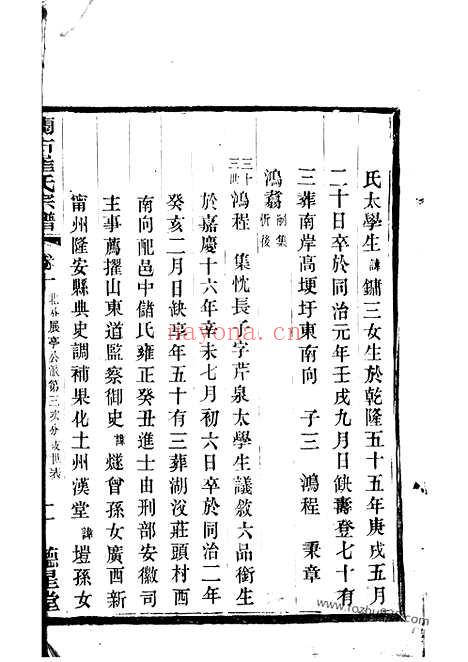 氏太學生諱鏞三女生於乾隆五十五年庚戌五月
二十日卒於同治元年壬戌九月日缺壽登七十有
三葬南岸高埂圩東南向 子三 鴻程 秉章
鴻翥嗣集忻後
三十三世鴻程 集忱長子字芹泉太學生議敘六品銜生
於嘉慶十六年辛未七月初六日卒於同治二年
癸亥二月日缺享年五十有三葬湖㳇莊頭村西
南向配邑中儲氏雍正癸丑進士由刑部安徽司
主事薦擢山東道監察御史諱燧曾孫女廣西新
甯州隆安縣典史調補果化土州漢堂諱塏孫女
氏宗譜 卷十 北 展亭公派第三次分支世表 二 德星堂
nayona.cn
www.fozhu920.com